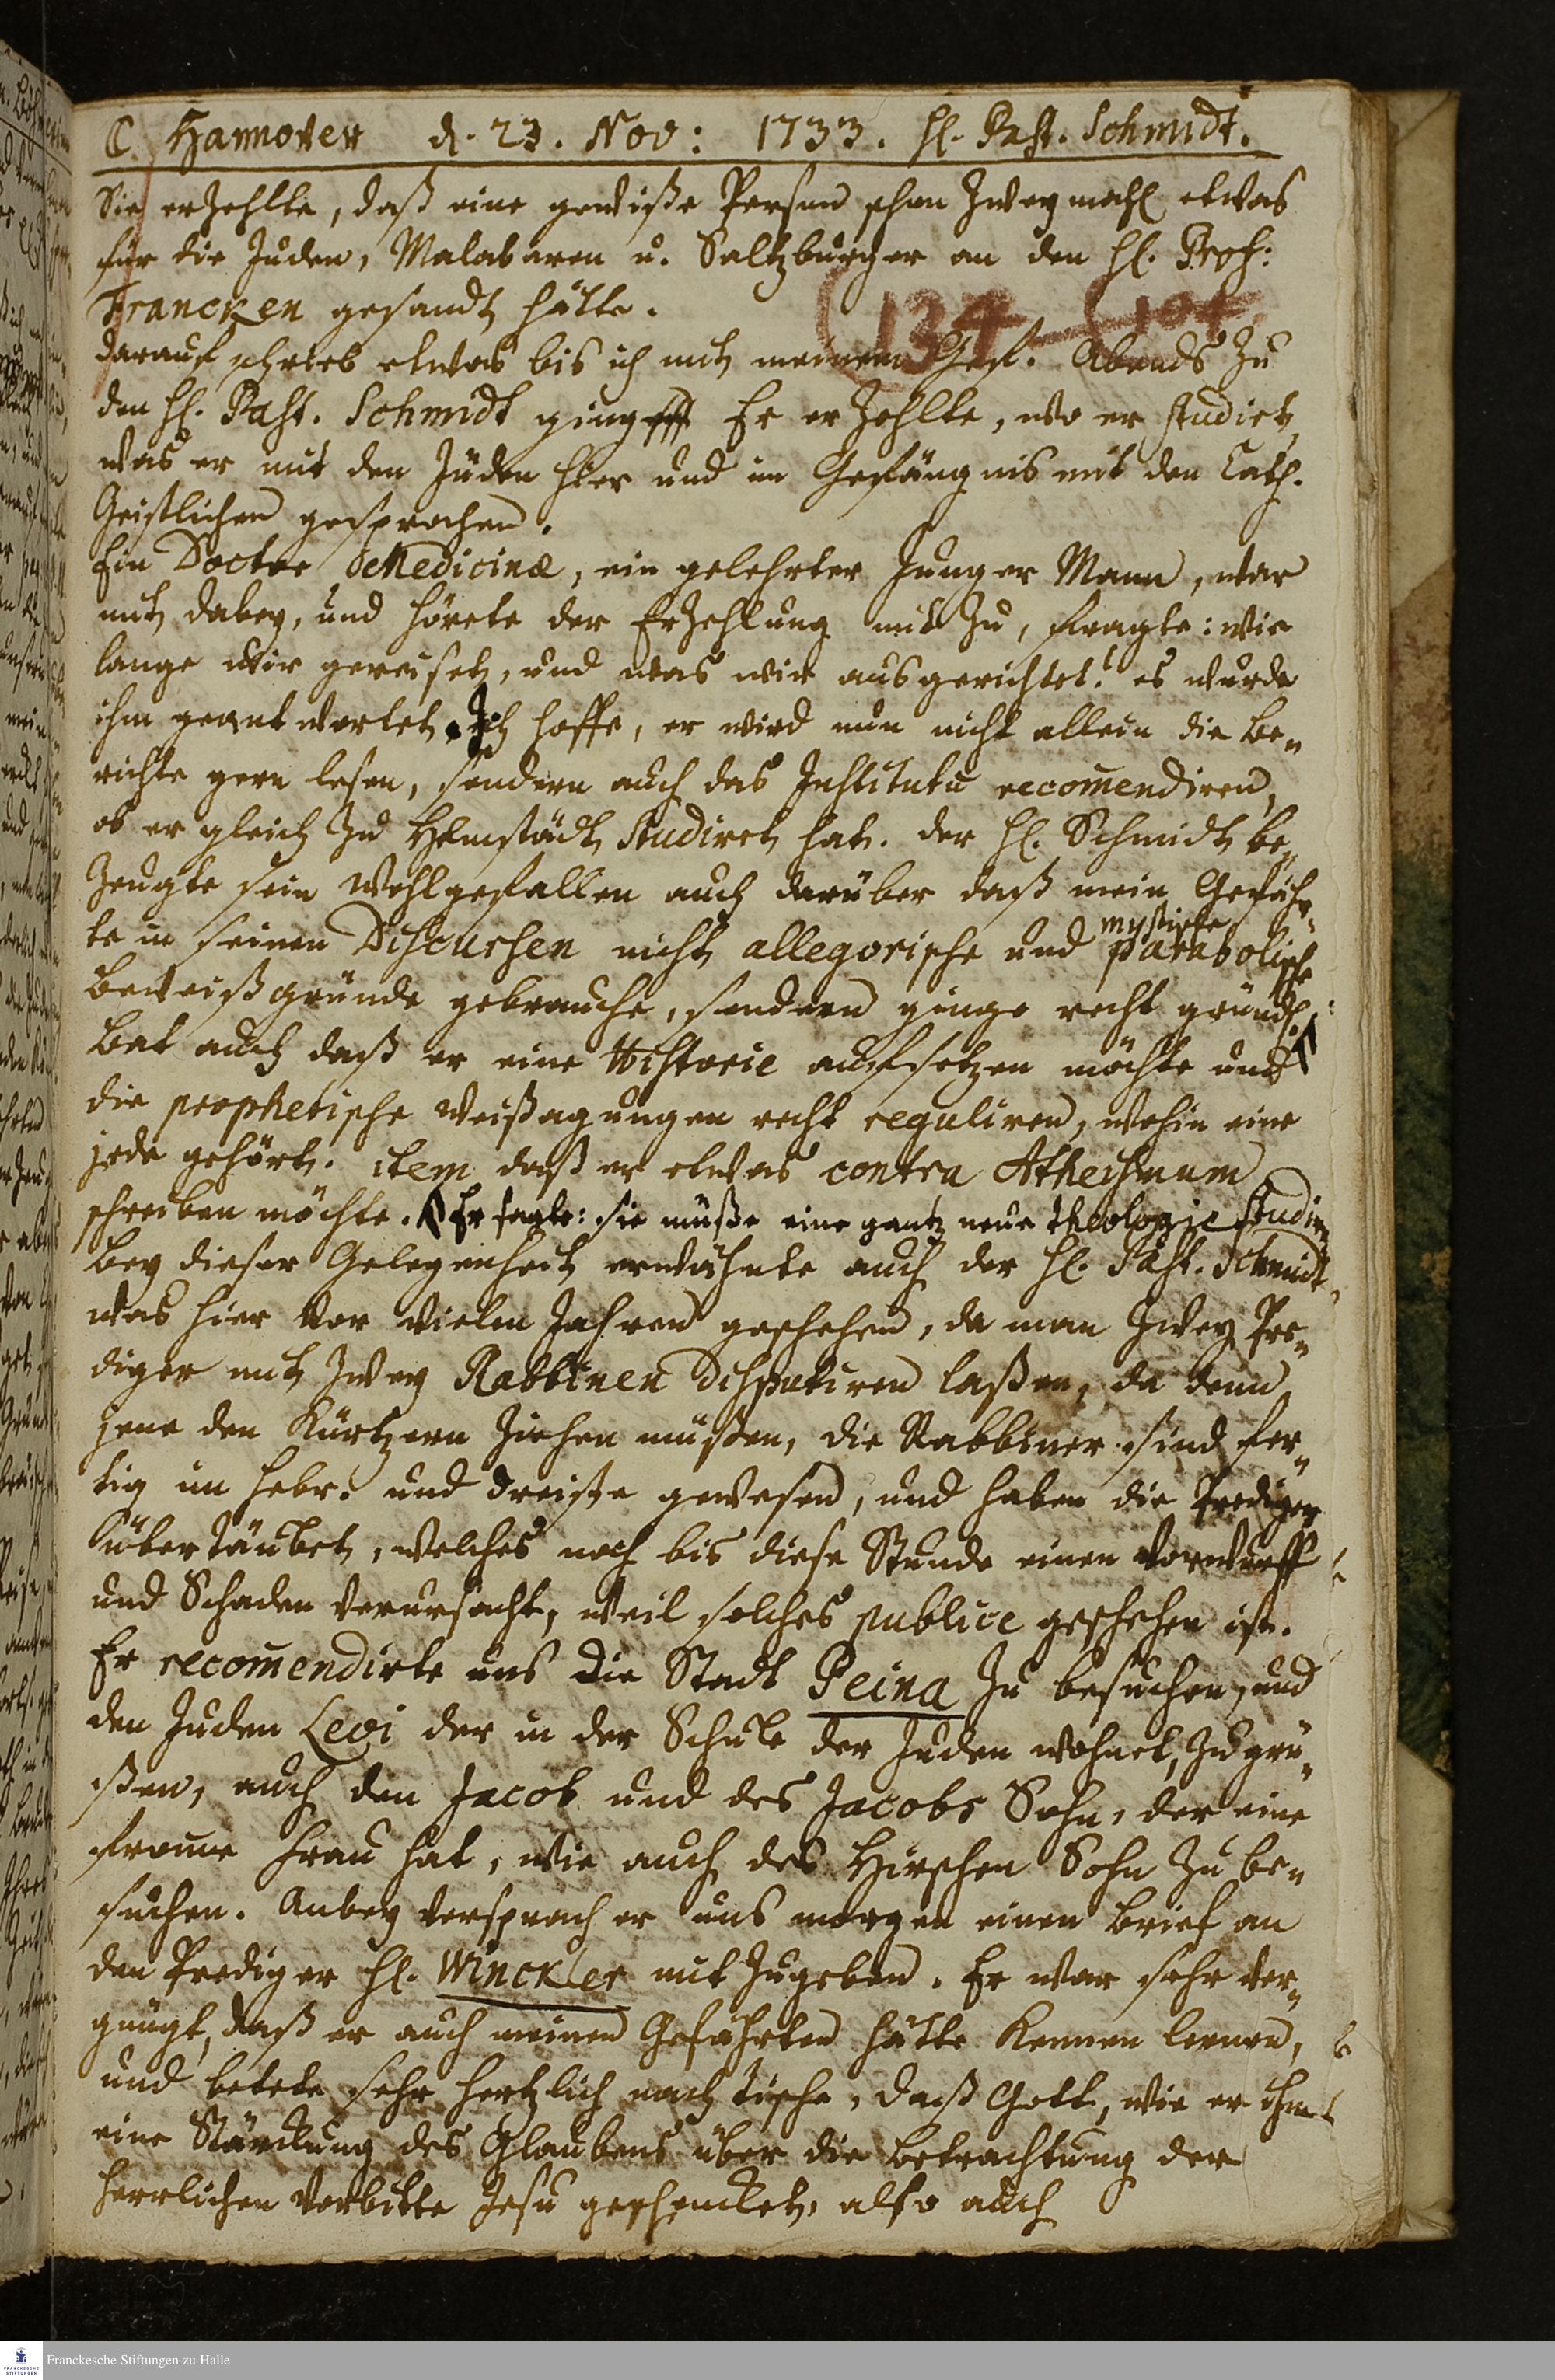 C. Hannover d. 23. Nov: 1733. H. Past. Schmidt.
Sie erzehlte, daß eine gewiße Person schon zweymahl etwas
für die Juden, Malabaren u. Saltzburger an den H. Prof:
Francken gesandt hätte.
134 104
darauf schrieb etwas bis ich mit meinem Gef. Abends zu
den H. Past. Schmidt ging Er erzehlte, wo er studiret
was er mit den Jüden hier und im Gefängnis mit den Cath.
Geistlichen gesprochen.
Ein Doctor Medicinæ, ein gelehrter junger Mann, war
mit dabey, und hörete der Erzehlung mit zu, fragte: wie
lange wir gereiset, und was wir ausgerichtet! es wurde
ihm geantwortet. Ich hoffe, er wird nun nicht allein die Be-
richte gern lesen, sondern auch das Institutū recom̄endiren,
ob er gleich zu Helmstädt studiret hat. der H. Schmidt be-
zeugte sein Wohlgefallen auch darüber daß mein Gefähr-
te in seinen Discursen nicht allegorische und mystische parabolische
Beweißgründe gebrauche, sondern ginge recht gründl:
Bat auch daß er eine Historie aufsetzen möchte und
die prophetische Weißagungen recht reguliren, wohin eine
jede gehört. item daß er etwas contra Atheismum
schreiben möchte. Er sagte: sie müße eine gantz neue theologie studir
Bey dieser Gelegenheit erwähnte auch der H. Past. Schmidt,
was hier vor vielen Jahren geschehen, da man zwey Pre-
diger mit zwey Rabbinen disputiren laßen, da denn
jene den Kürtzern ziehen müßen, die Rabbiner sind fer-
tig im Hebr. und dreiste gewesen, und haben die Prediger
übertäubet, welches noch bis diese Stunde einen Vorwurff
und Schaden verursacht, weil solches publice geschehen ist.
Er recom̄endirte uns die Stadt Peina zu besuchen, und
den Juden Levi der in der Schule der Juden wohnet, zu grü-
ßen, auch den Jacob und des Jacobs Sohn, der eine
from̄e Frau hat, wie auch des Hirschen Sohn zu be-
suchen. Anbey versprach er uns morgen einen Brief an
den Prediger H. Winckler mit zugeben. Er war sehr ver-
gnügt, daß er auch meinen Gefährten hätte kennen lernen,
und betete sehr hertzlich nach Tische, daß Gott, wie er ihm
eine Stärckung des Glaubens über die Betrachtung der
herrlichen Vorbitte Jesu geschencket, also auch
Franckesche Stiftungen zu Halle